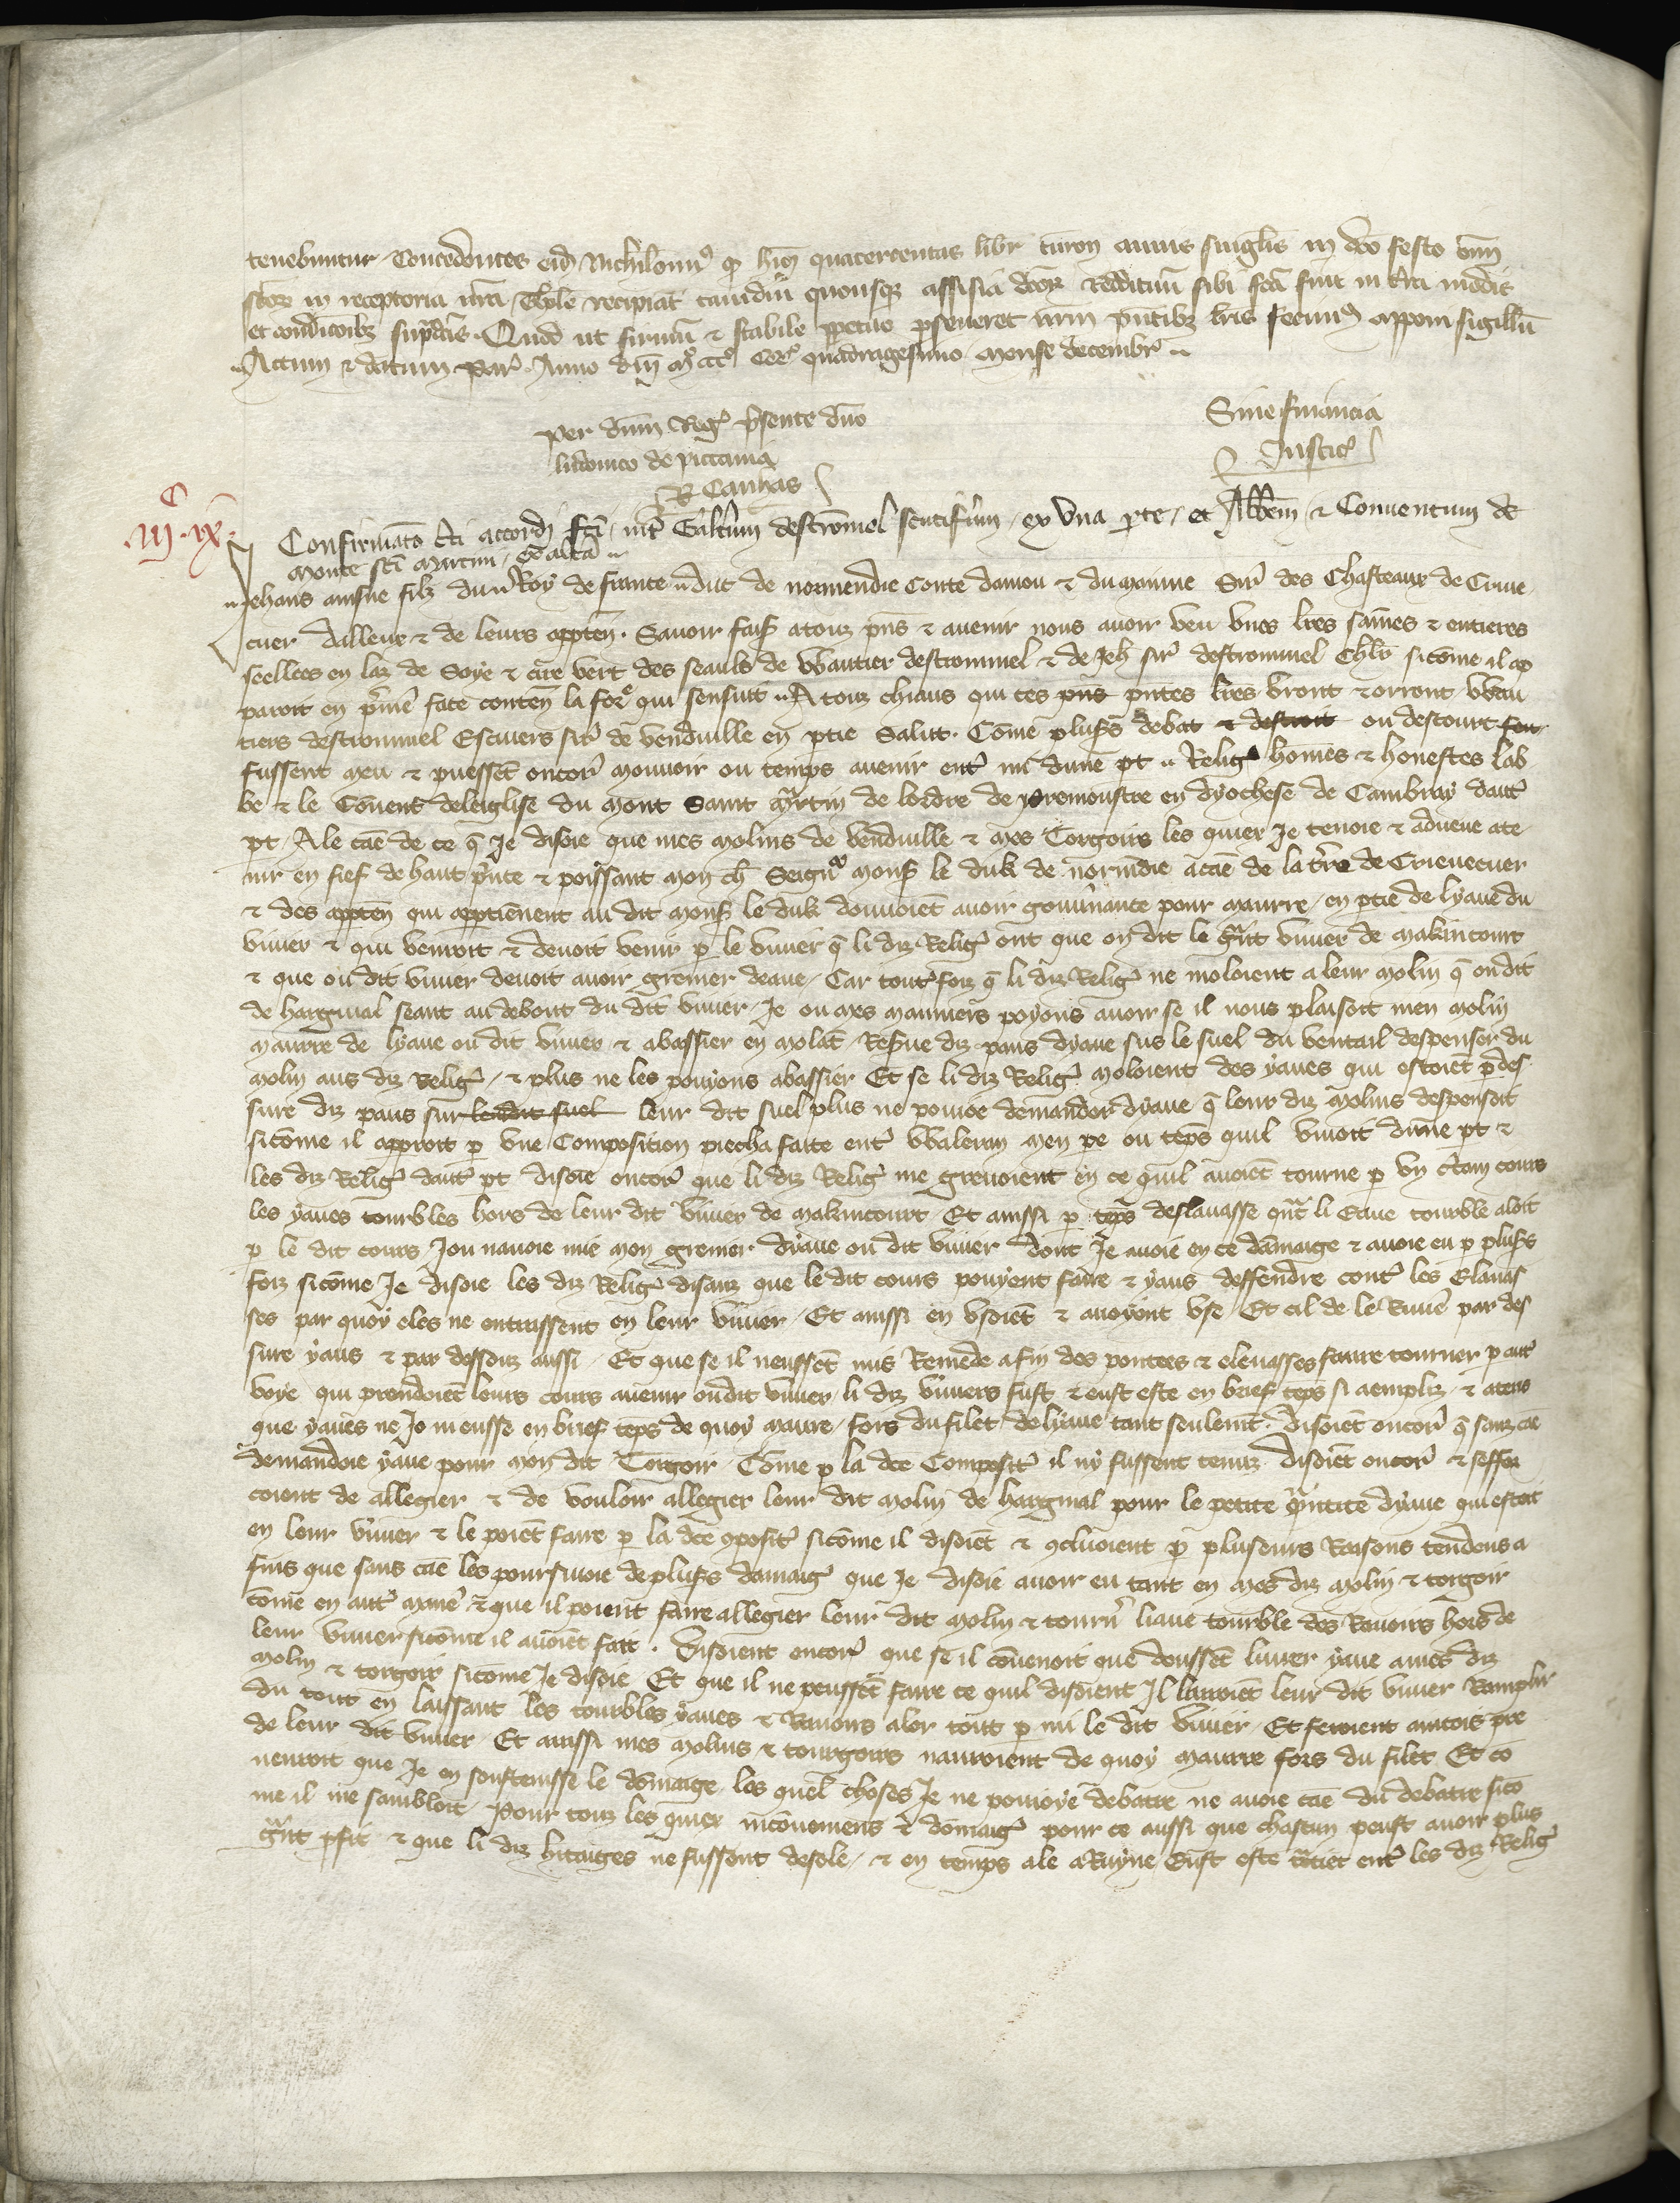 tenebuntur. Concedentes eid Nichilomin9 q hmoi quatercentas libr turon annis singlis in dco festo omn
scor in receptoria nra Tholose recipiat tamdiu quousqz assisia dcor reddituu sibi fca fuit in terra modis
et condicoibz supdcis. Quod ut firmu & stabile ppetuo pseveret nrm pntibz lris fecim9 apponi sigillu
Actum & datum par. Anno dni M ccc quadragesimo mense decembr
per dnm Reg psente dno
ludovico de pictavia
R Canhas
Sine financia
Justic
C
iij ix
Confirmato cti accordi fci int Galtum destromel scutifum ex una pte et Abbem & Conventum de
monte sci martini ex alta
Jehans ainsne filz du Roy de france duc de normendie conte danjou & du maine Sire des Chasteaux de Creve
cuer dalleux & de leurs apptn. Savoir fais a touz pns & avenir nous avoir veu unes lres saines & entieres
seellees en laz de soye & cire vert des seauls de Wautier destrommel & de Jeh sire destrommel chlr sicome il ap
paroit en pmie face conten la forme qui sensuit A touz chiaus qui ces pns pntes lres verront & orront Wau
tiers destrommel Escuiers sire de venduille en ptie salut. Come pluss debat & destroit ou descort feu
fussent meu & peussent encore mouvoir ou temps avenir ent mi dune pt & Relig homes & honestes lab
be & le Couvent de leiglise du mont saint martin de lordre de premoustre en dyochese de Cambray daut
pt A le cae de ce q Je disoie que mes molins de venduille & mes Torgoirs les quiex Je tenoie & adveue a te
nir en fief de haut prince & poissant mon ch Seigneur mons le duk de normendie a cae de la tre de Crievecuer
& des appten qui apptienent au dit mons le duk devoient avoir gouvnance pour maurre en ptie de lyaue du
vivier & qui venroit & devoit venir p le vivier q li diz Relig ont que on dit le grant vivier de makincourt
& que ou dit vivier devoit avoir grenier deaue Car toutes foiz q li diz Relig ne moloient a leur molin q on dit
de hargival seant au debout du dit vivier Je ou mes mauniers poyons avoir se il nous plaisoit men molin
maurre de lyaue ou dit vivier & abassier en molat Reserve diz paus dyaue sus le suel du ventail despenser du
molin aus diz Relig & plus ne les pouyons abassier Et se li diz Relig moloient des yaues qui estoiet p des
sure diz paus sur le dit suel leur dit suel plus ne pouoie demander dyaue q leur diz molins despensoit
sicome il apparoit p une Composition piecha faite ent Waleran men pe ou teps quil vivoit dune pt &
les diz Relig daut pt disoie encore que li diz Relig me grevoient en ce quil avoiet tourne p un ctain cours
les yaues tourbles hors de leur dit vivier de makincourt Et aussi p teps deslavasse qnt li Eaue tourble aloit
p le dit cours Jou navoie mie mon grenier dyaue ou dit vivier dont Je avoie en ce damaige & avoie eu p pluss
foiz sicome Je disoie les diz Relig disanz que le dit cours pouyent faire & yaus deffendre cont les Elavas
ses par quoy eles ne entrassent en leur vivier Et aussi en usoiet & avoyent use Et cil de le Riviere par des
sure yaus & par dessouz aussi Et que se il neussent mis Remede a fin des portees & elevasses faire tourner p aut
voye qui prendoiet leurs cours avenir ou dit vivier li diz viviers fust & eust este en brief teps si aempliz & aterris
que yaues ne Je ni eusse en brief teps de quoy maure fors du filet de lyaue tant seulemt. disoiet encore q sanz cae
demandoie yaue pour mon dit Torgoir Come p la dce Composit il ny fussent tenuz disoiet encore & seffor
coient de allegier & de vouloir allegier leur dit molin de hargival pour le petite quntite dyaue qui estoit
en leur vivier & le poiet faire p la dce composit sicome il disoiet & concluoient p pluseurs Raisons tendens a
fins que sans cae les poursivoie de pluss damaig que Je disoie avoir eu tant en mes diz molin & torgoir
come en aut maniere & que il poient faire allegier leur dit molin & tourn liaue tourble des Ravoirs hors de
leur vivier sicome il avoiet fait. Disoient encore que se il covenoit que deussent livrer yaue a mes diz
molin & torgoir sicome Je disoie Et que il ne peussent faire ce quil disoient Il lairoiet leur dit vivier Remplir
du tout en laissant les tourbles yaues & Ravoirs aler tout p mi le dit vivier Et feroient aincois pre
de leur dit vivier Et aussi mes molins & tourgoirs nauroient de quoy maurre fors du filet Et co
nenroit que Je en soustenisse le domaige les quel choses Je ne pouoye debatre ne avoie cae du debatre sico
me il me sambloit Pour touz les quiex incoveniens & domaig pour ce aussi que chascun peust avoir plus
grnt pfit & que li diz hitaiges ne fussent desole & en temps ale a Ruyne Eust este traitiet ent les diz Relig